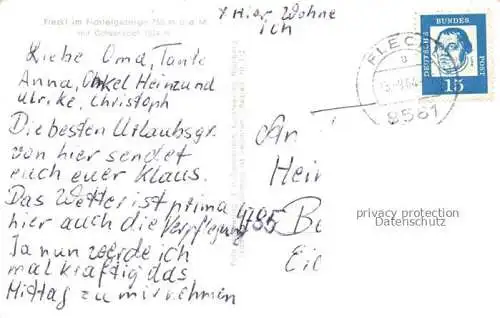 Fleckl im Fichtelgebirge 750 m ü. d. M.
mit Ochsenkopf 1024 m
x Hier Wohne
ich
Liebe Oma, Tante
Anna, Onkel Heinz und
Ulrike, Christoph
Die besten Urlaubsgr.
von hier sendet
euch euer Klaus.
Das Wetter ist prima
hier auch die Verpflegung
Ja nun werde ich
mal kräftig das
Mittag zu mir nehmen
FLECK
8581
DEUTSCHE
BUNDES
POST
15
An
Hein
4785 Be
Eic
privacy protection
Datenschutz